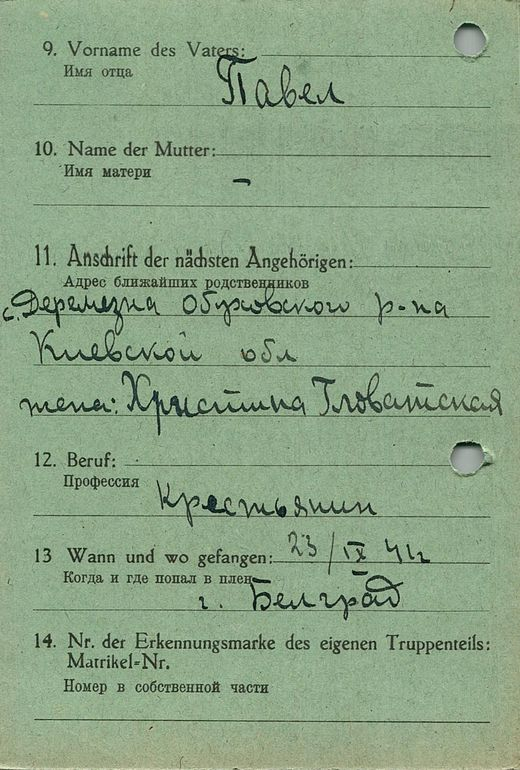 9. Vorname des Vaters:
Имя отца
Павел
10. Name der Mutter:
Имя матери
-
11. Anschrift der nächsten Angehörigen:
Адрес ближайших родственников
с. Деремезна Обуховского р-на
Киевской обл
жена: Христина Гловатская
12. Beruf:
Профессия
Крестьянин
13 Wann und wo gefangen: 23/IX 41г
Когда и где попал в плен
г. Белград
14. Nr. der Erkennungsmarke des eigenen Truppenteils:
Matrikel-Nr.
Номер в собственной части